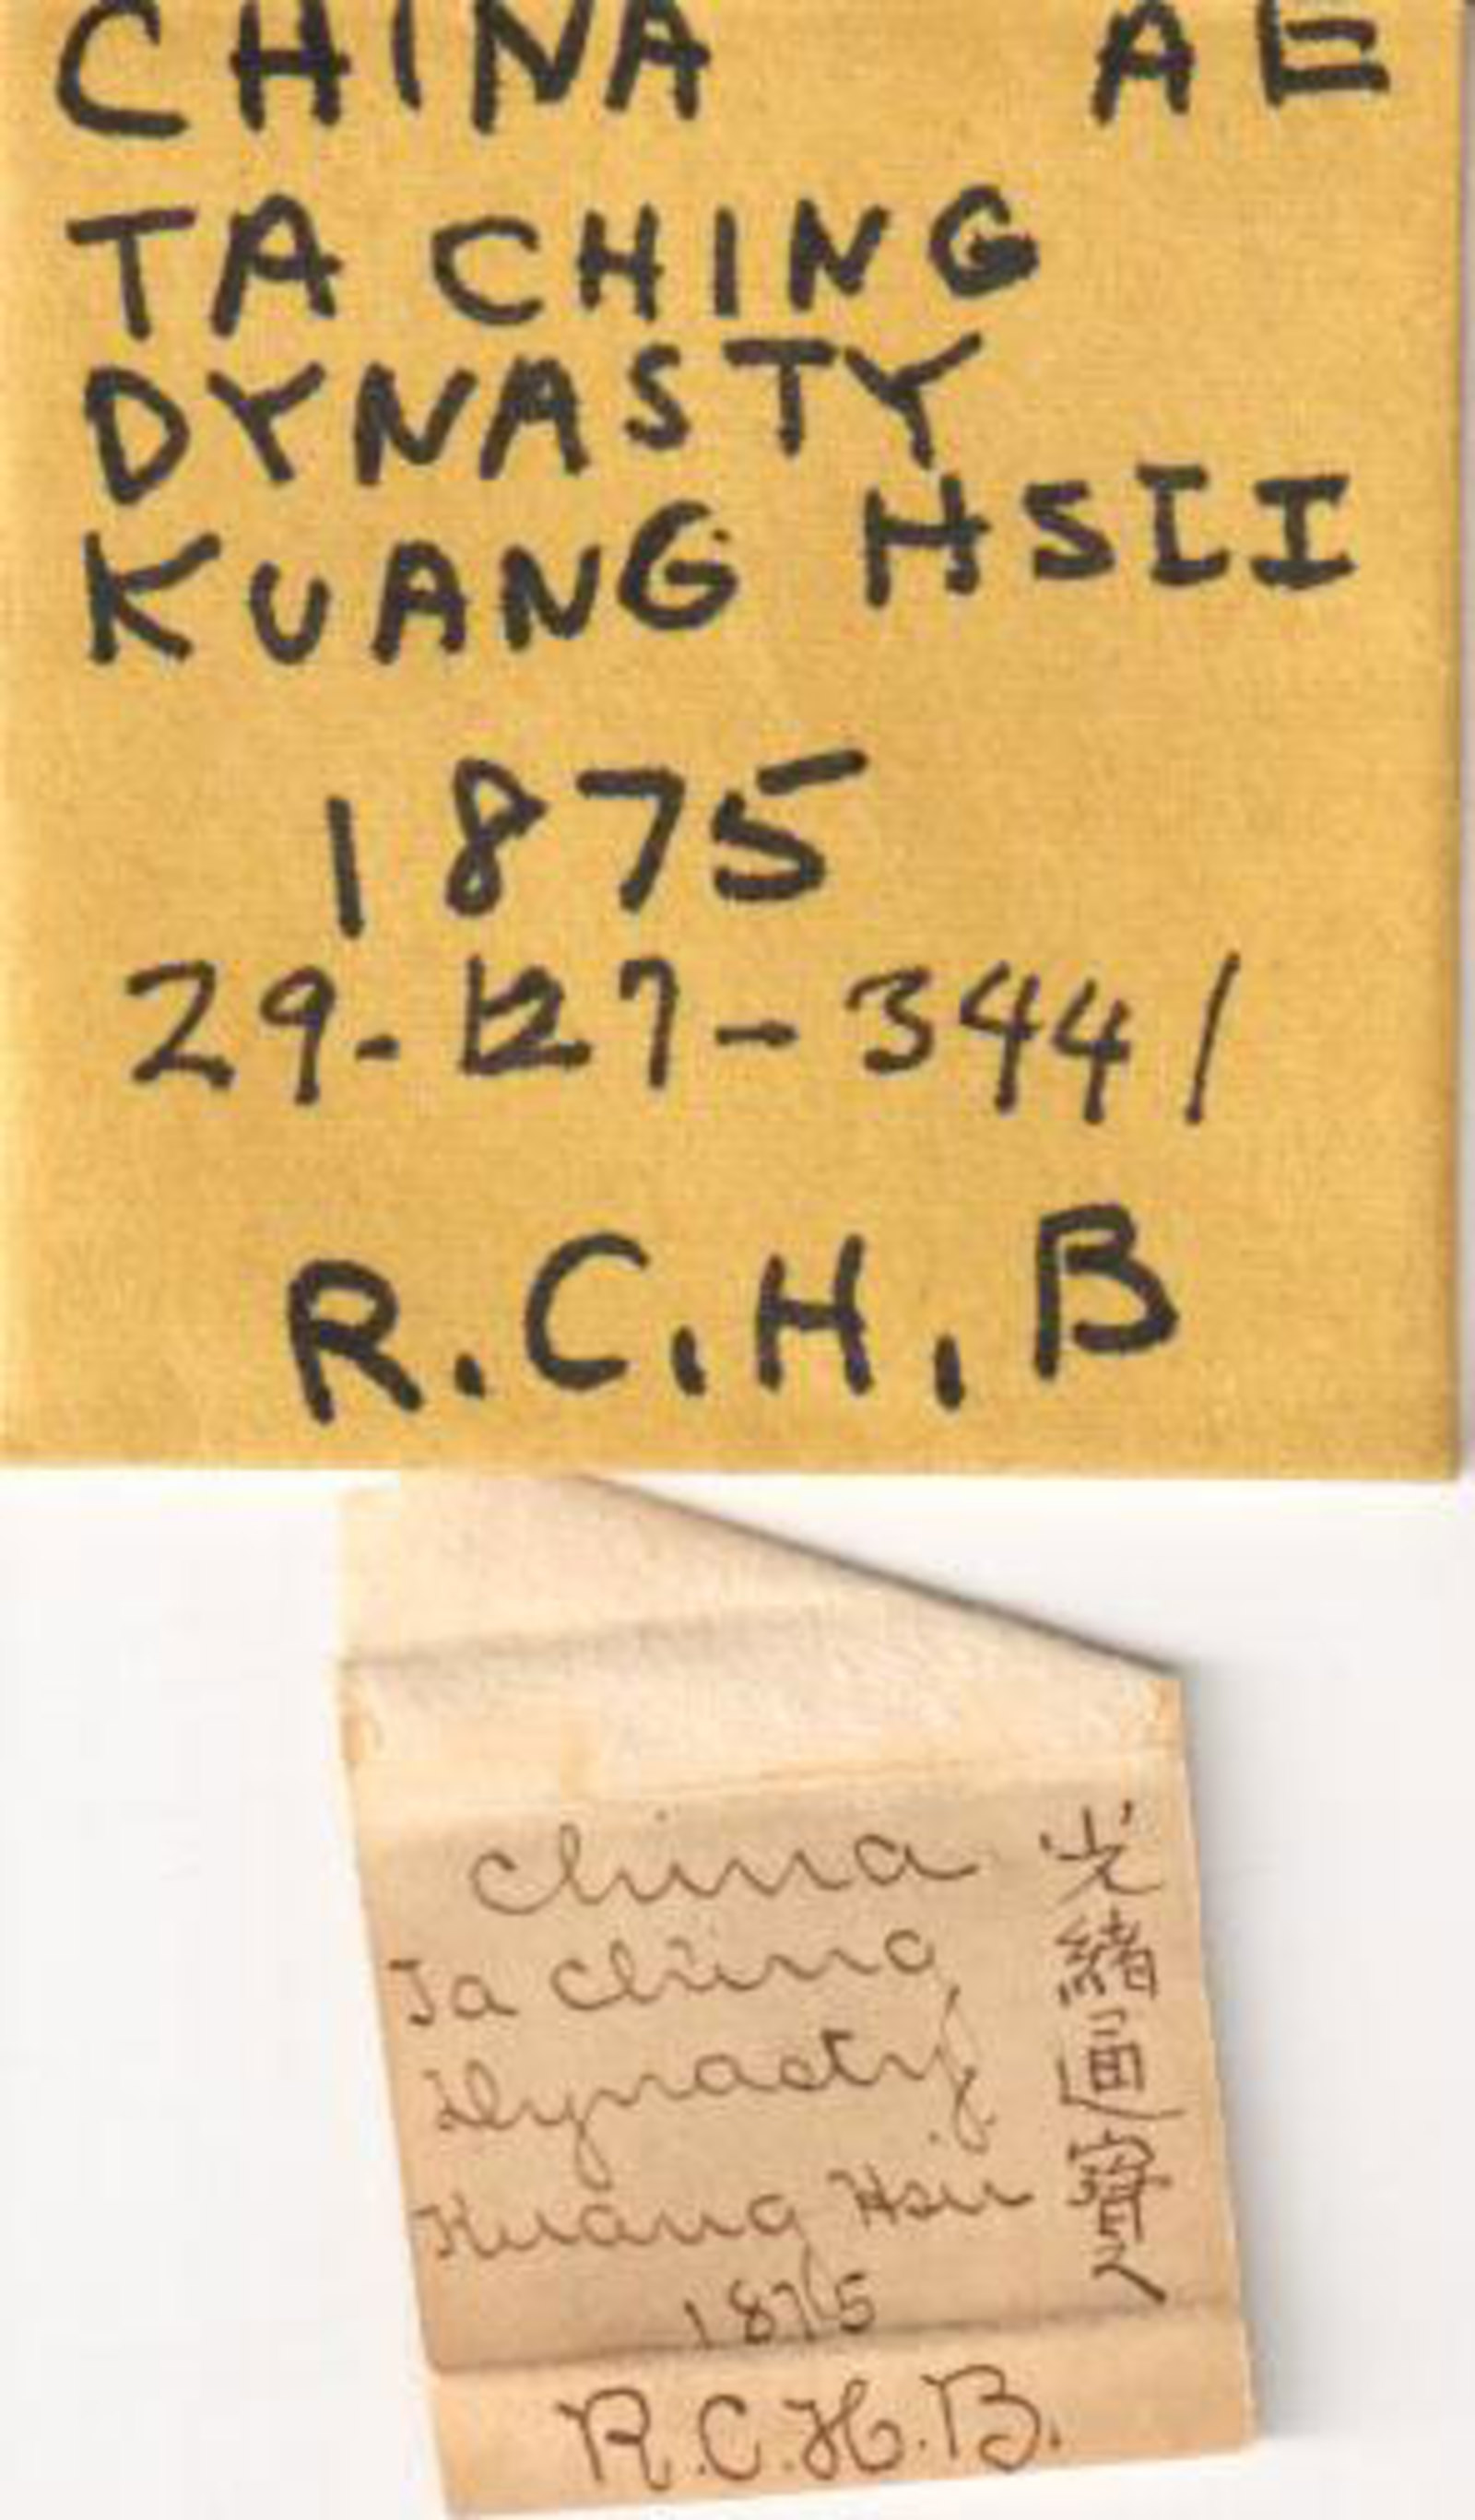 CHINA AE
TA CHING
DYNASTY
KUANG HSII
1875
29-127-3441
R.C.H.B
China
Ta Ching
Dynasty
Kuang Hsu
1875
R.C.H.B.
光緒通寶